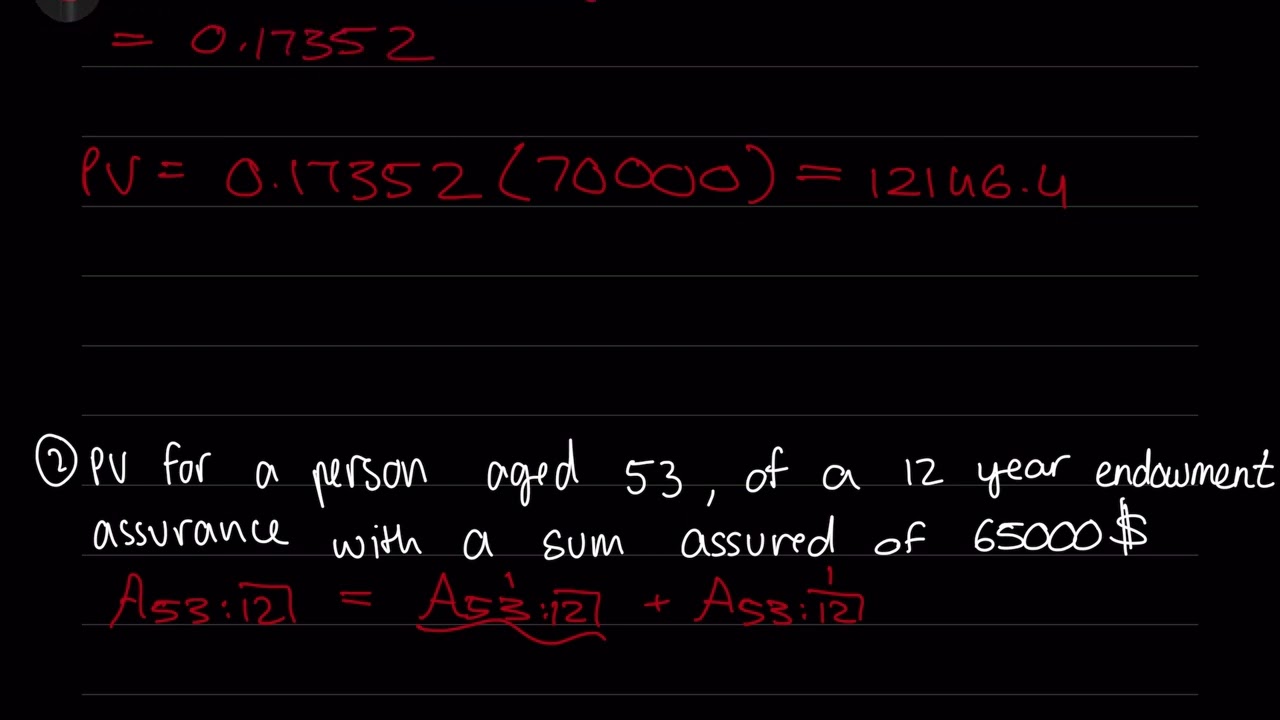 = 0.17352
PV = 0.17352 (70000) = 12146.4
② PV for a person aged 53, of a 12 year endowment
assurance with a sum assured of 65000$
A53:12̅| = A5̍3:12̅| + A53:1̍2̅|